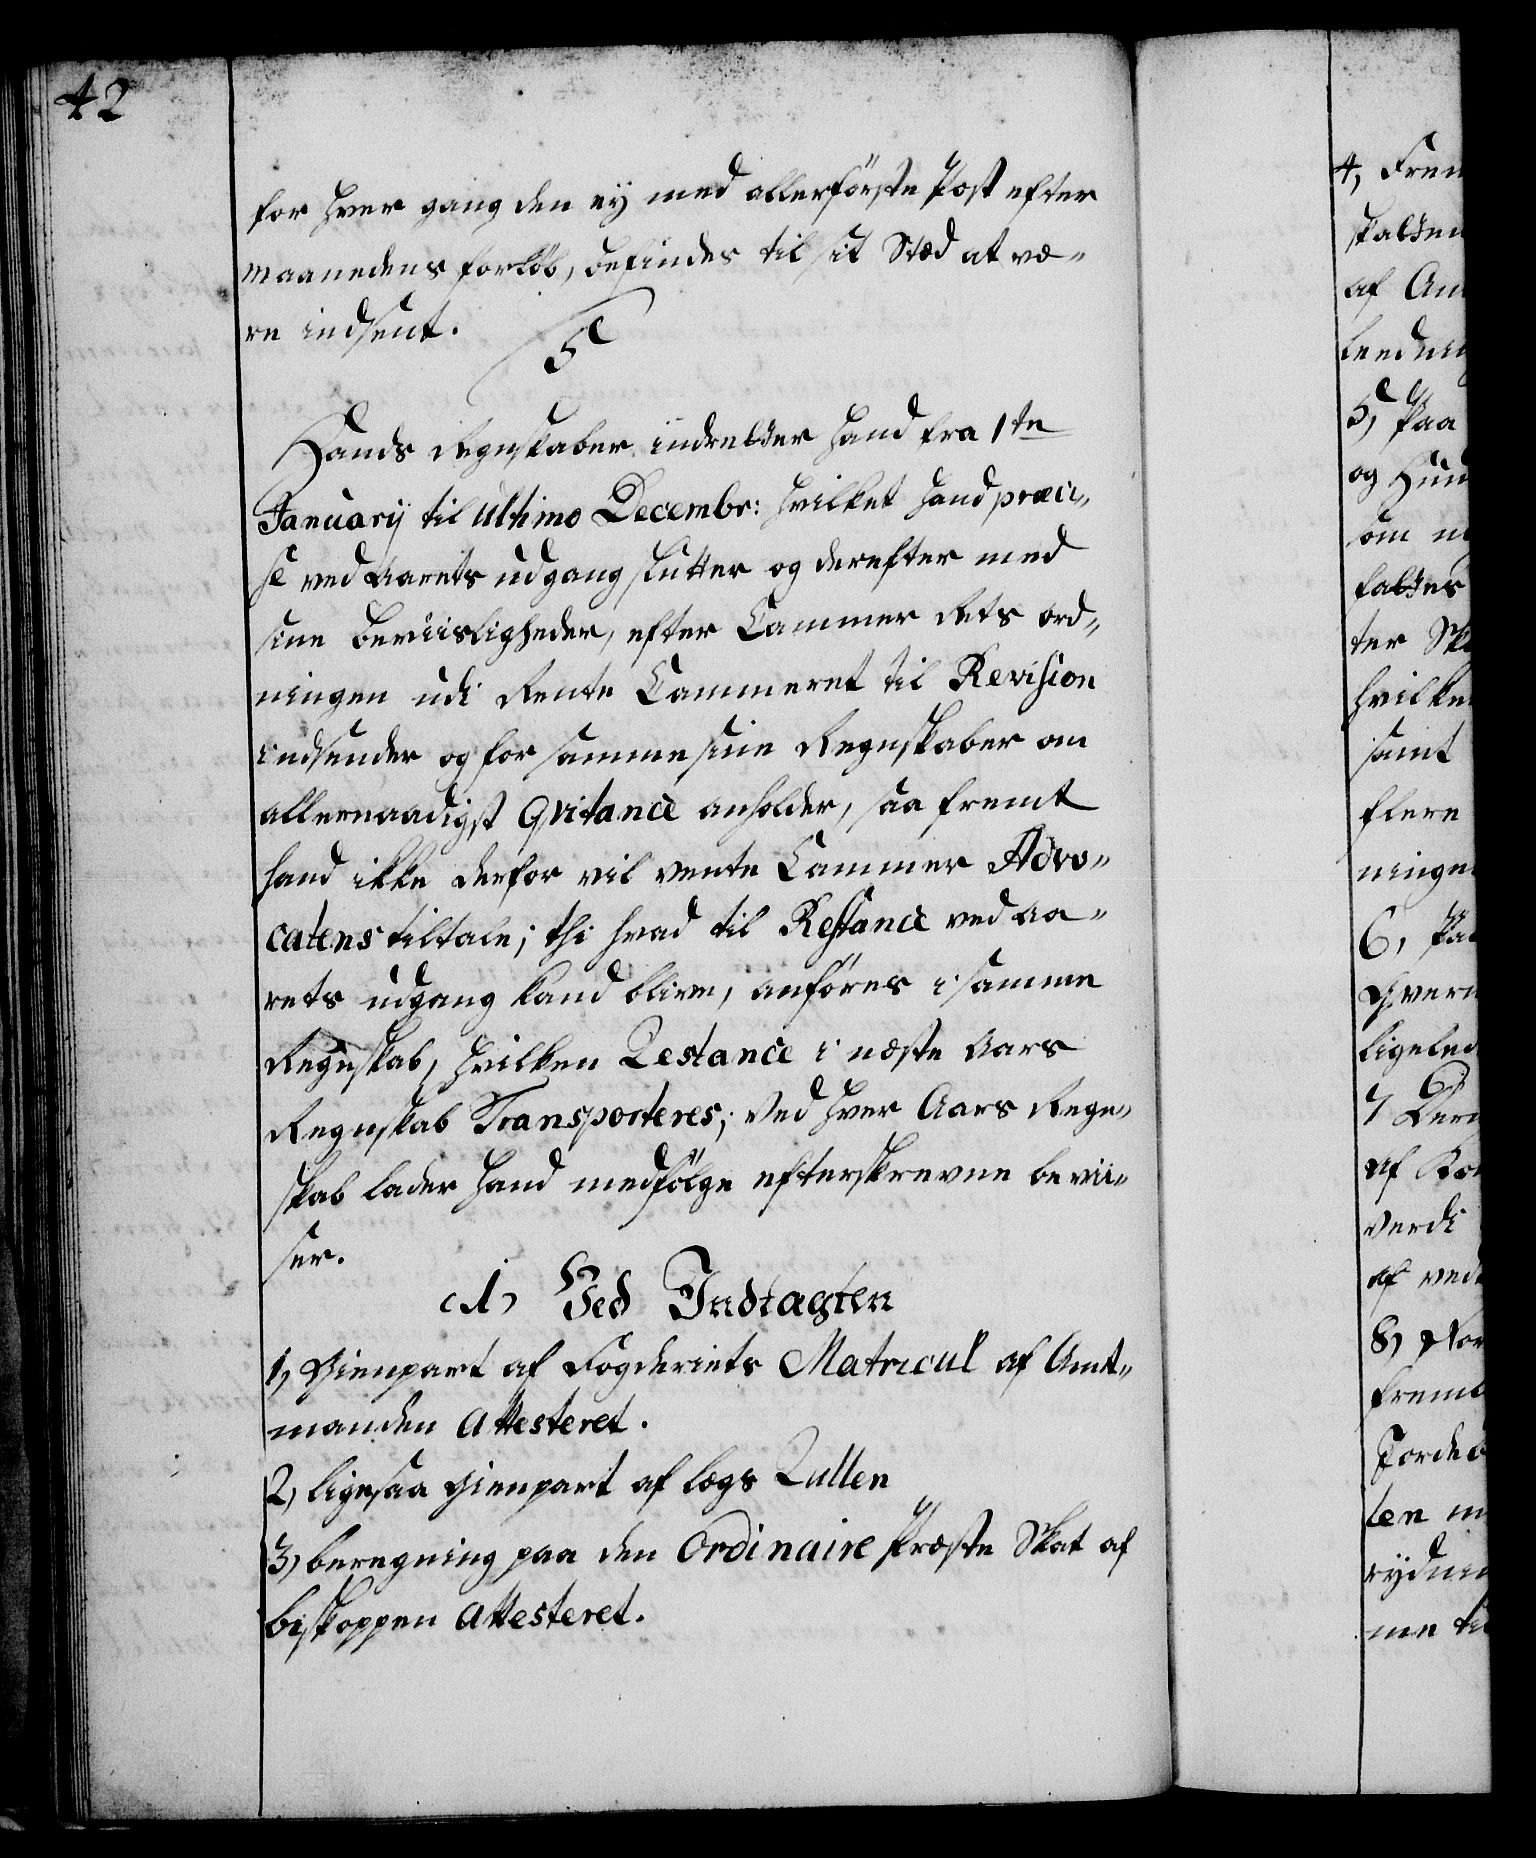 42
for hver gang den ey med allerförste Post efter
maanedens forlöb, befindes til sit Stæd at væ„
re indsent.
5
Hands Regnskaber indretter hand fra 1te
Januarij til ultimo Decembr: hvilket hand præci„
se ved Aarets udgang slutter og derefter med
sine beviisligheder, efter Cammer Rets ord„
ningen udi Rente Cammeret til Revision
indsender og for samme sine Regnskaber om
allernaadigst Qvitance anholder, saa fremt
hand ikke derfor vil vente Cammer Advo„
catens tiltale; thi hvad til Restance ved Aa„
rets udgang kand blive, anföres i samme
Regnskab, hvilken Restance i næste Aars
Regnskab Transporteres; Ved hver Aars Regn„
skab lader hand medfölge efterskrevne bevii„
ser.
1, Ved Indtægten
1, Gienpart af Fogderiets Matricul af Amt„
manden Attesteret.
2, ligesaa gienpart af lægs Rullen
3, beregning paa den Ordinaire Præste Skat af
biskoppen Attesteret.
4, Frem
af Am
5, Paa
og Huu
om
ter Sk
hvilke
samt
flere
ninge
6, Paa
ligeled
7
af
verdi
af ved
8, Nor
fremt